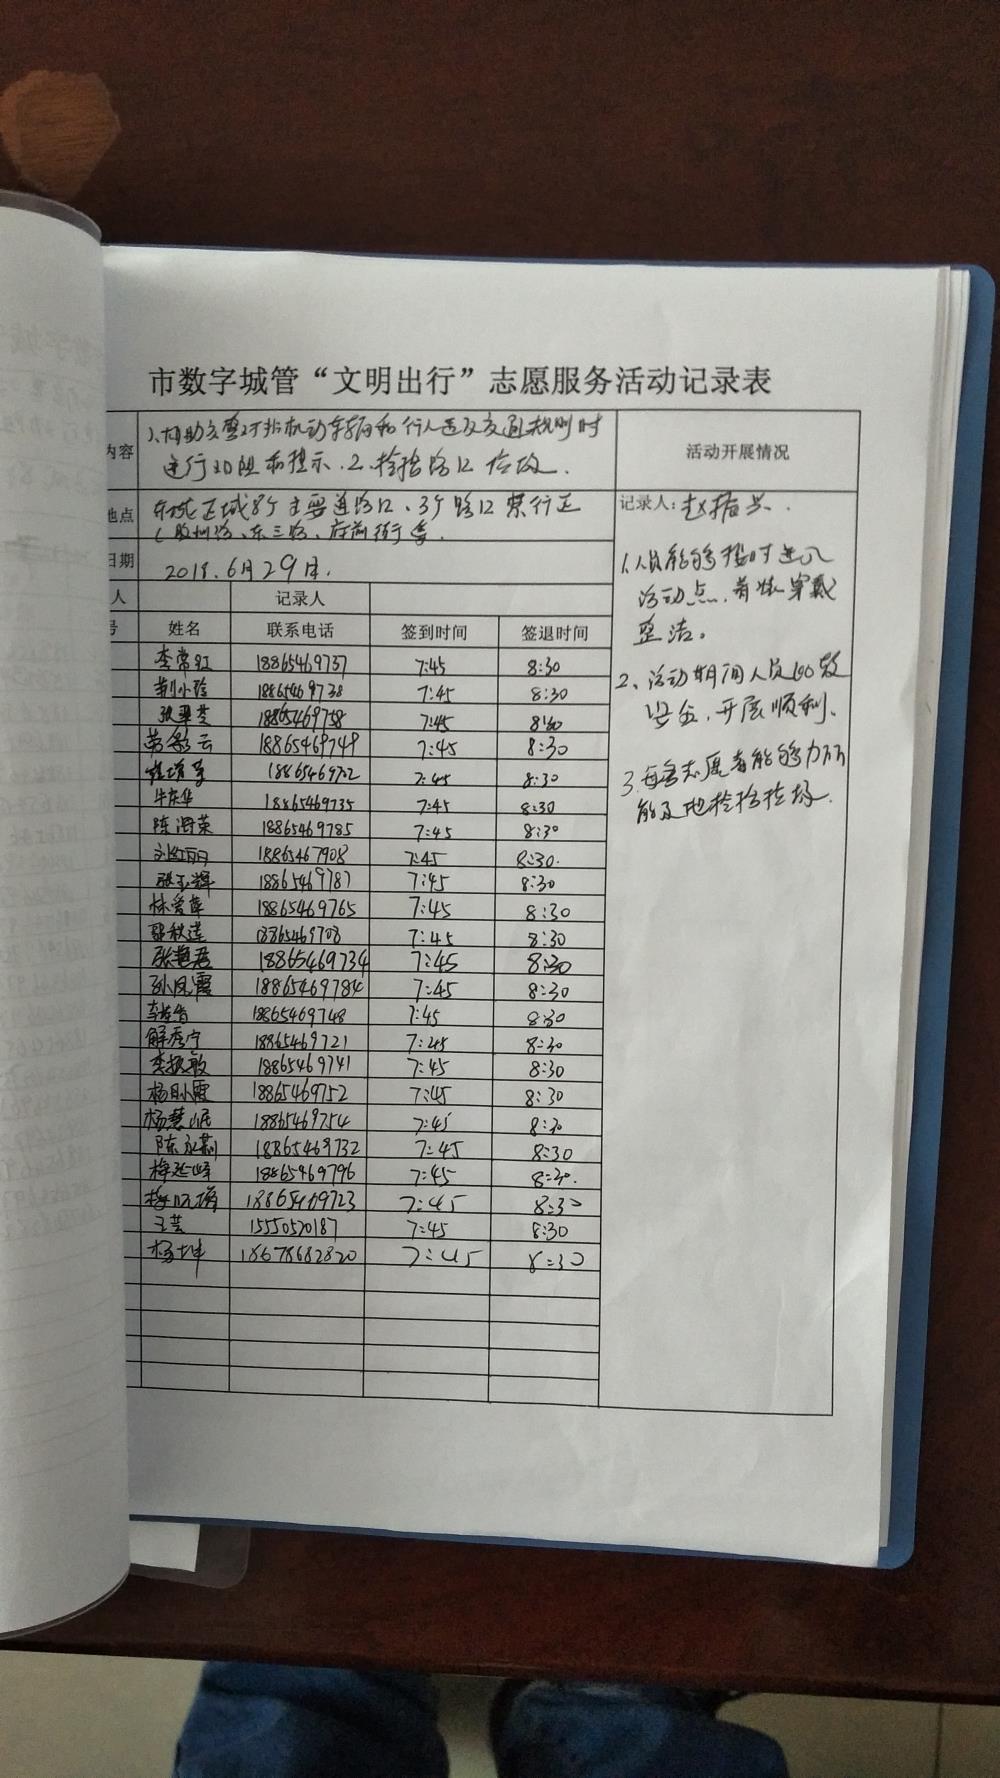 市数字城管“文明出行”志愿服务活动记录表
内容 1、协助交警对非机动车辆和行人违反交通规则时
进行劝阻和提示.2、捡拾路口垃圾.
活动开展情况
地点 东城区域8个主要道路口、3个路口禁行区
(胶州路、东三路、府前街等.
日期 2018.6月29日.
人 记录人
号 姓名 联系电话 签到时间 签退时间
李常虹 18865469737 7:45 8:30
荆小玲 18865469738 7:45 8:30
张翠芝 18865469758 7:45 8:30
18865469749 7:45 8:30
18865469702 7:45 8:30
牛庆华 18865469735 7:45 8:30
陈海荣 18865469785 7:45 8:30
刘红丽 18865467908 7:45 8:30.
张玉辉 18865469787 7:45 8:30
林爱萍 18865469765 7:45 8:30
郭秋莲 18865469708 7:45 8:30
张艳君 18865469734 7:45 8:30
孙凤霞 18865469784 7:45 8:30
18865469748 7:45 8:30
解秀宁 18865469721 7:45 8:30
李振敏 18865469741 7:45 8:30
杨月霞 18865469752 7:45 8:30
杨慧岷 18865469754 7:45 8:30
陈永莉 18865469732 7:45 8:30
梅延峰 18865469796 7:45 8:30.
18865469723 7:45 8:30
王芸 15550520187 7:45 8:30
杨坤 18678682820 7:45 8:30
记录人: 赵振兴.
1.人员能够按时进入
活动点,着装穿戴
整洁。
2、活动期间人员
安全,开展顺利、
3.每名志愿者能够力所
能及地捡拾垃圾.